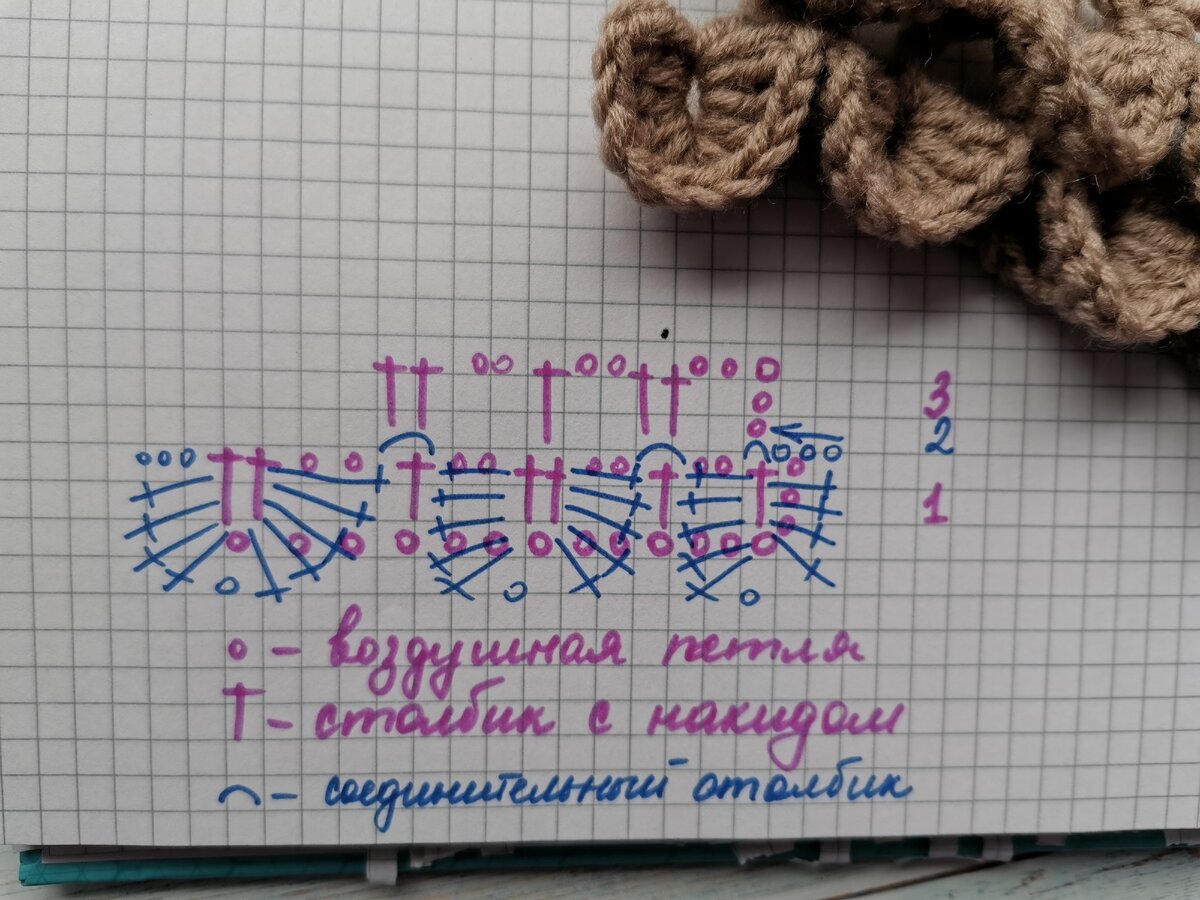 3
2
1
o - воздушная петля
† - столбик с накидом
⌒ - соединительный столбик